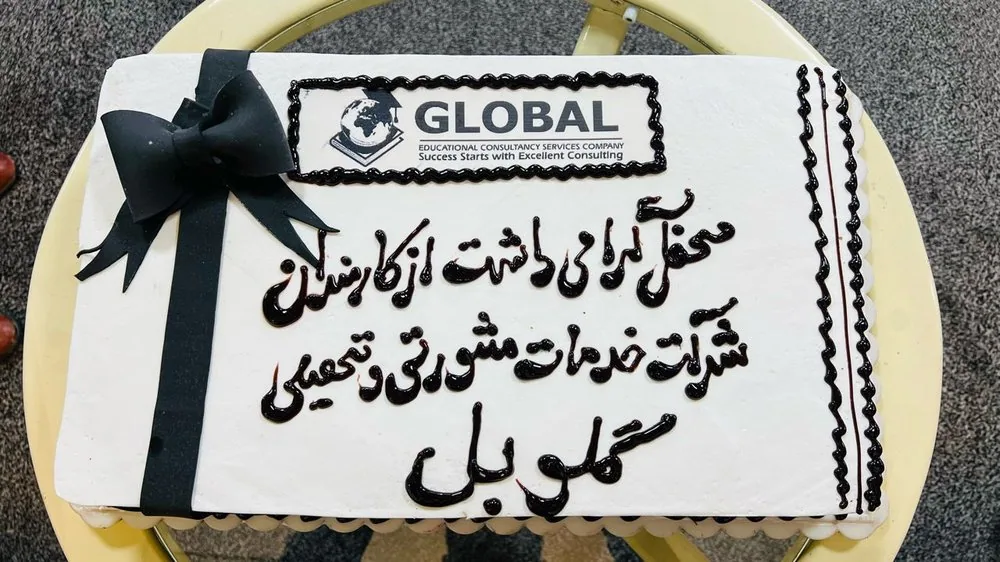 GLOBAL
EDUCATIONAL CONSULTANCY SERVICES COMPANY
Success Starts with Excellent Consulting
محفل گرامی داشت از کارمندان
شرکت خدمات مشورتی و تحصیلی
گلوبل